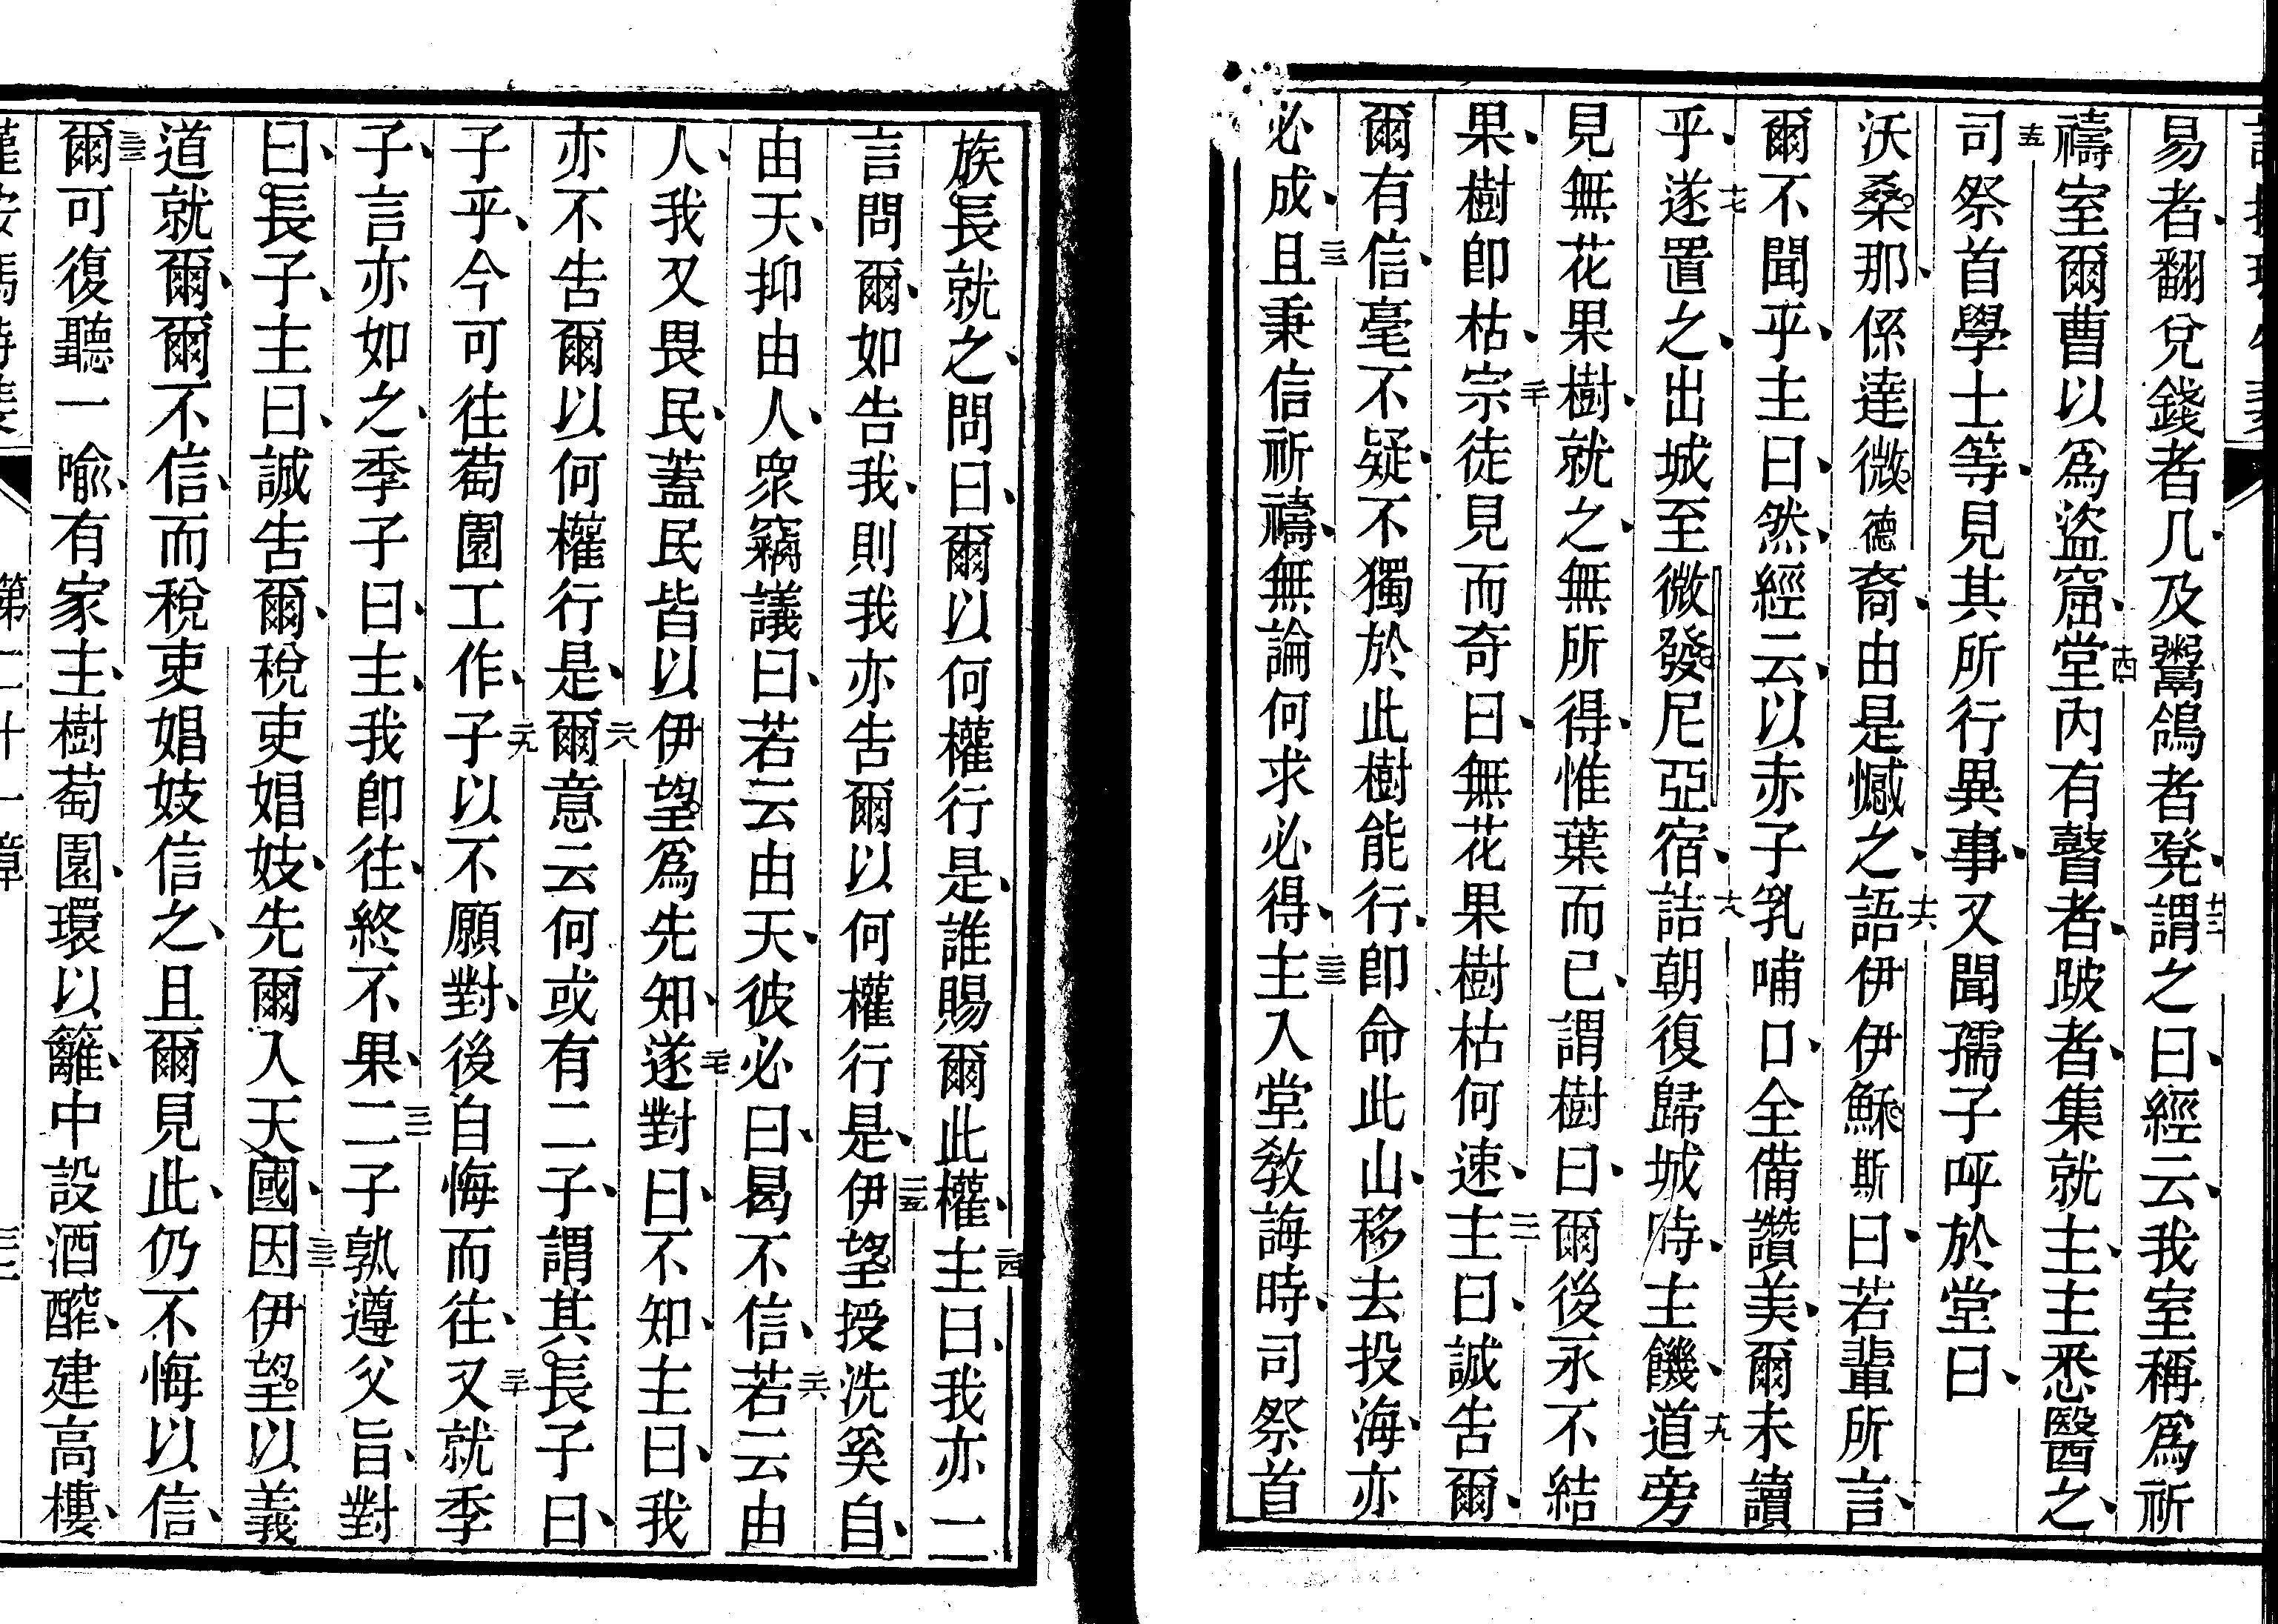 易者、翻兌錢者几、及鬻鴿者凳、廿三謂之曰、經云、我室稱爲祈
禱室爾曹以爲盜窟、十四堂內有瞽者、跛者、集就主、主悉醫之、
十五司祭首學士等、見其所行異事、又聞孺子呼於堂曰、
沃桑那、係達微德裔、由是憾之、十六語伊伊穌斯曰、若輩所言、
爾不聞乎、主曰、然、經云、以赤子乳哺口、全備讚美、爾未讀
乎、十七遂置之、出城至微發尼亞宿、十八詰朝復歸城時、主饑、十九道旁
見無花果樹、就之、無所得、惟葉而已、謂樹曰、爾後永不結
果、樹卽枯、二十宗徒見而奇曰、無花果樹枯何速、二一主曰、誠告爾、
爾有信、毫不疑、不獨於此樹能行、卽命此山、移去投海、亦
必成、二二且秉信祈禱、無論何求必得、二三主入堂教誨時、司祭首
族長就之、問曰、爾以何權行是、誰賜爾此權、二四主曰、我亦一
言問爾、如告我、則我亦告爾以何權行是、二五伊望授洗奚自、
由天、抑由人、衆竊議曰、若云由天、彼必曰、曷不信、二六若云由
人、我又畏民、蓋民皆以伊望爲先知、二七遂對曰、不知、主曰、我
亦不告爾以何權行是、二八爾意云何、或有二子、謂其長子曰、
子乎、今可往萄園工作、二九子以不願對、後自悔而往、三十又就季
子、言亦如之、季子曰、主、我卽往、終不果、三一二子孰遵父旨、對
曰、長子、主曰、誠告爾、稅吏娼妓、先爾入天國、三二因伊望以義
道就爾、爾不信、而稅吏娼妓信之、且爾見此、仍不悔以信、
三三爾可復聽一喩、有家主、樹萄園、環以籬、中設酒醡、建高樓、
第二十一章